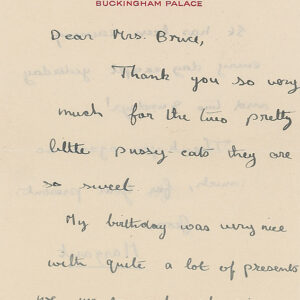 BUCKINGHAM PALACE
Dear Mrs. Bruce,
Thank you so very
much for the two pretty
little pussy-cats they are
so sweet.
My birthday was very nice
with quite a lot of presents